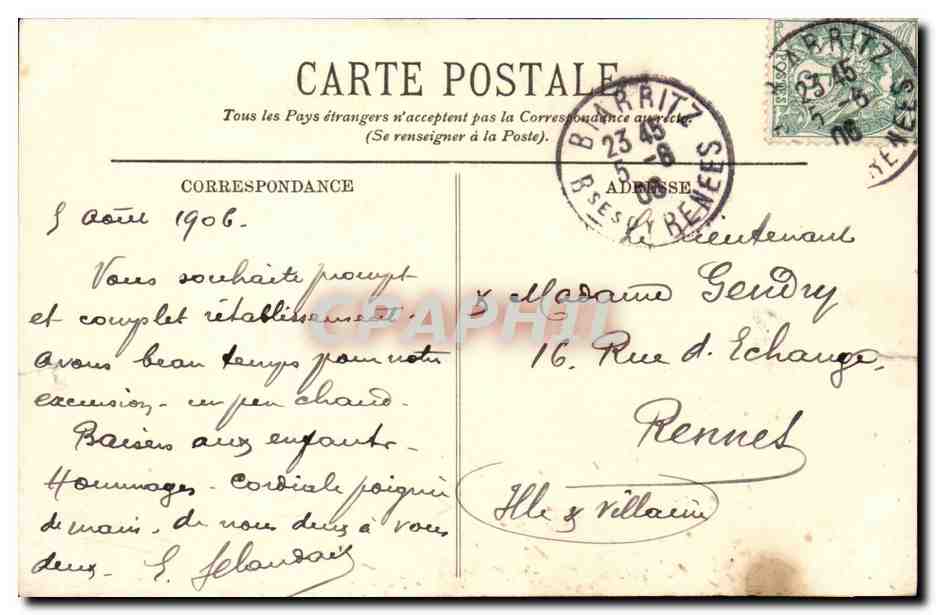 CARTE POSTALE
Tous les Pays étrangers n'acceptent pas la Correspondance au recto.
(Se renseigner à la Poste).
CORRESPONDANCE
5 Août 1906.
Vous souhaite prompt
et complet rétablissement.
avons beau temps pour notre
excursion - un peu chaud.
Baisers aux enfants.
Hommages - Cordiale poignée
de main - de nous deux à vous
deux - E.
ADRESSE
Le Lieutenant
& Madame Gendry
16, Rue d. Echange,
Rennes
Ille & Villaine
BIARRITZ
23 45
5 -8
06
BSES PYRENEES
BIARRITZ
23 45
5 -8
06
RENEES
CPAPHIL